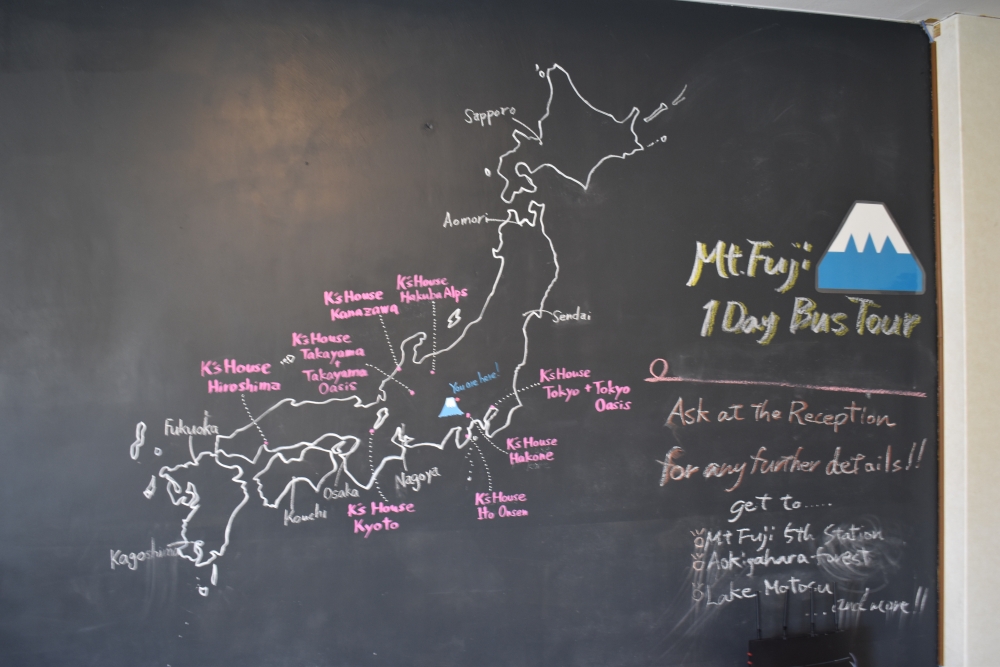 Sapporo
Aomori
Sendai
K's House
Hakuba Alps
K's House
Kanazawa
K's House
Takayama
+
Takayama
Oasis
K's House
Hiroshima
You are here!
K's House
Tokyo + Tokyo
Oasis
K's House
Hakone
K's House
Ito Onsen
K's House
Kyoto
Nagoya
Osaka
Kouchi
Fukuoka
Kagoshima
Mt.Fuji
1 Day Bus Tour
Ask at the Reception
for any further details!!
get to.....
Mt Fuji 5th Station
Aokigahara-forest
Lake Motosu
...and more!!